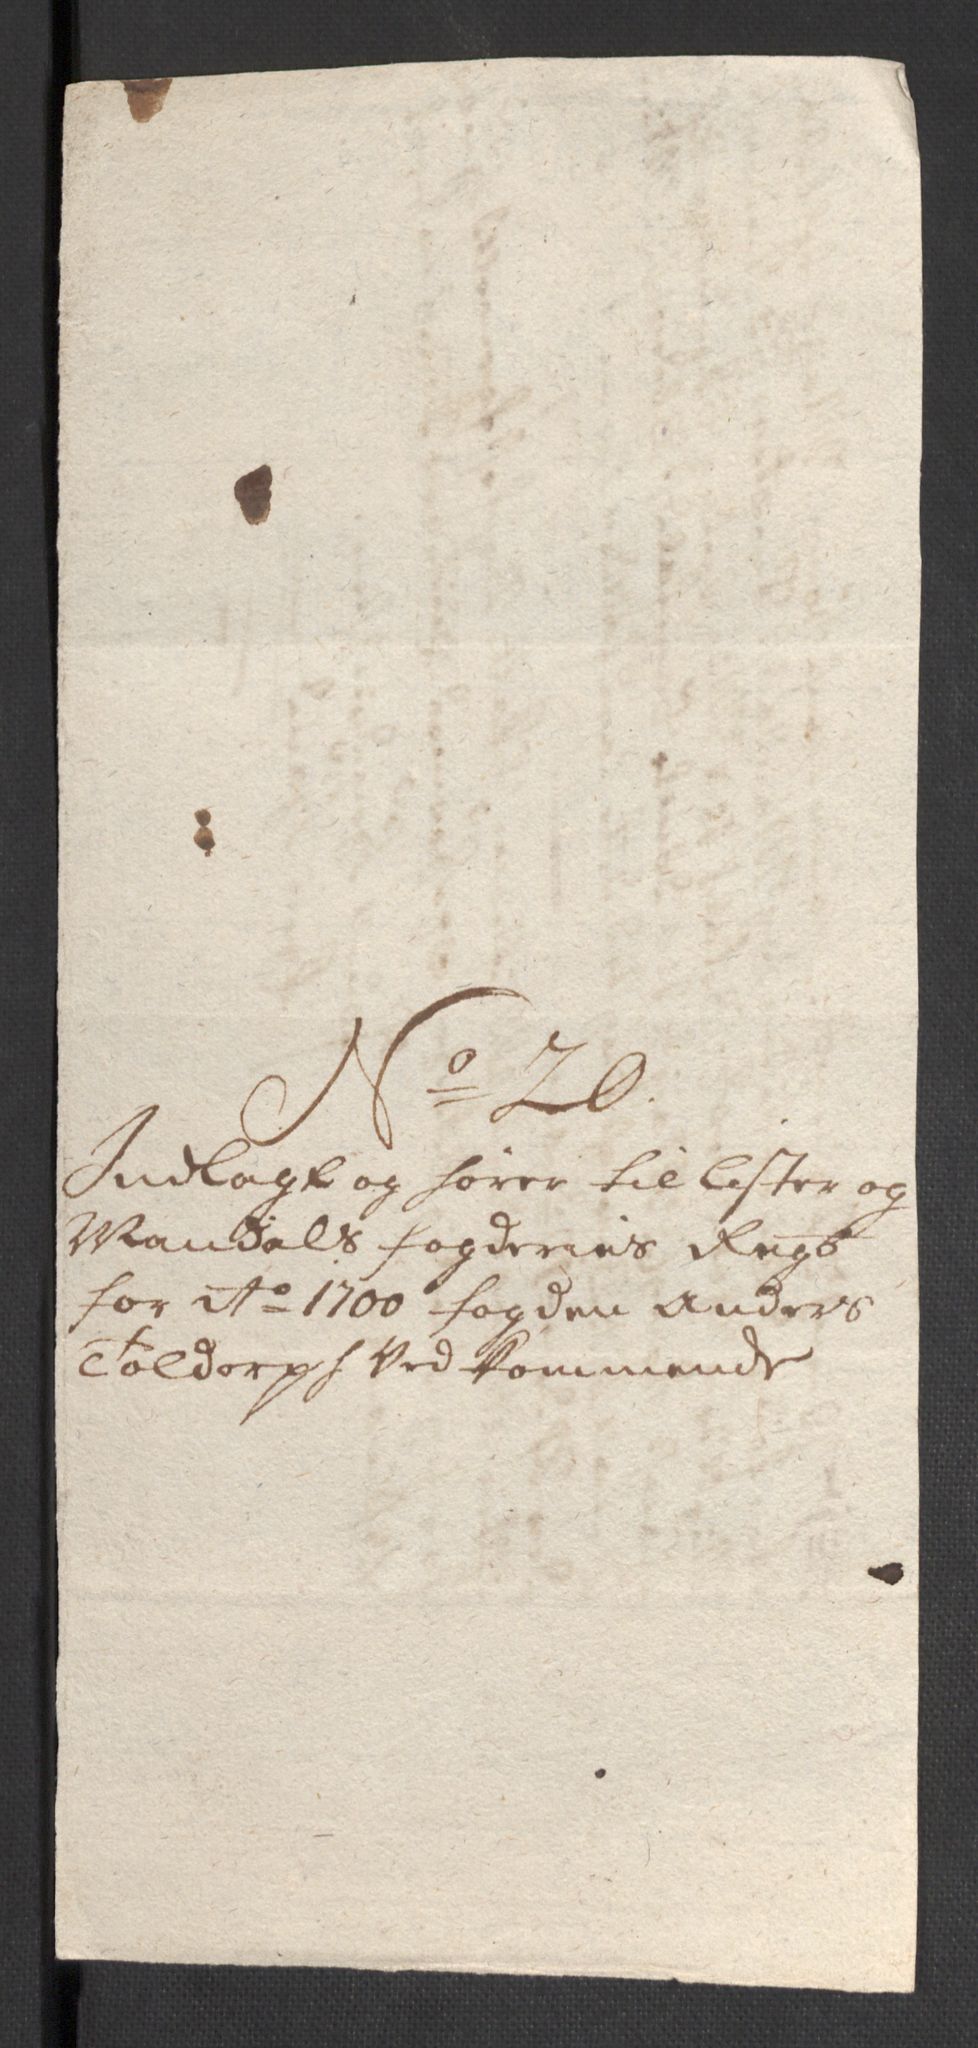 No 20.
Indlagt og hører til Lister og
Mandals fogderies Regb
for Ao 1700 fogden Anders
Toldorph Ved kommende